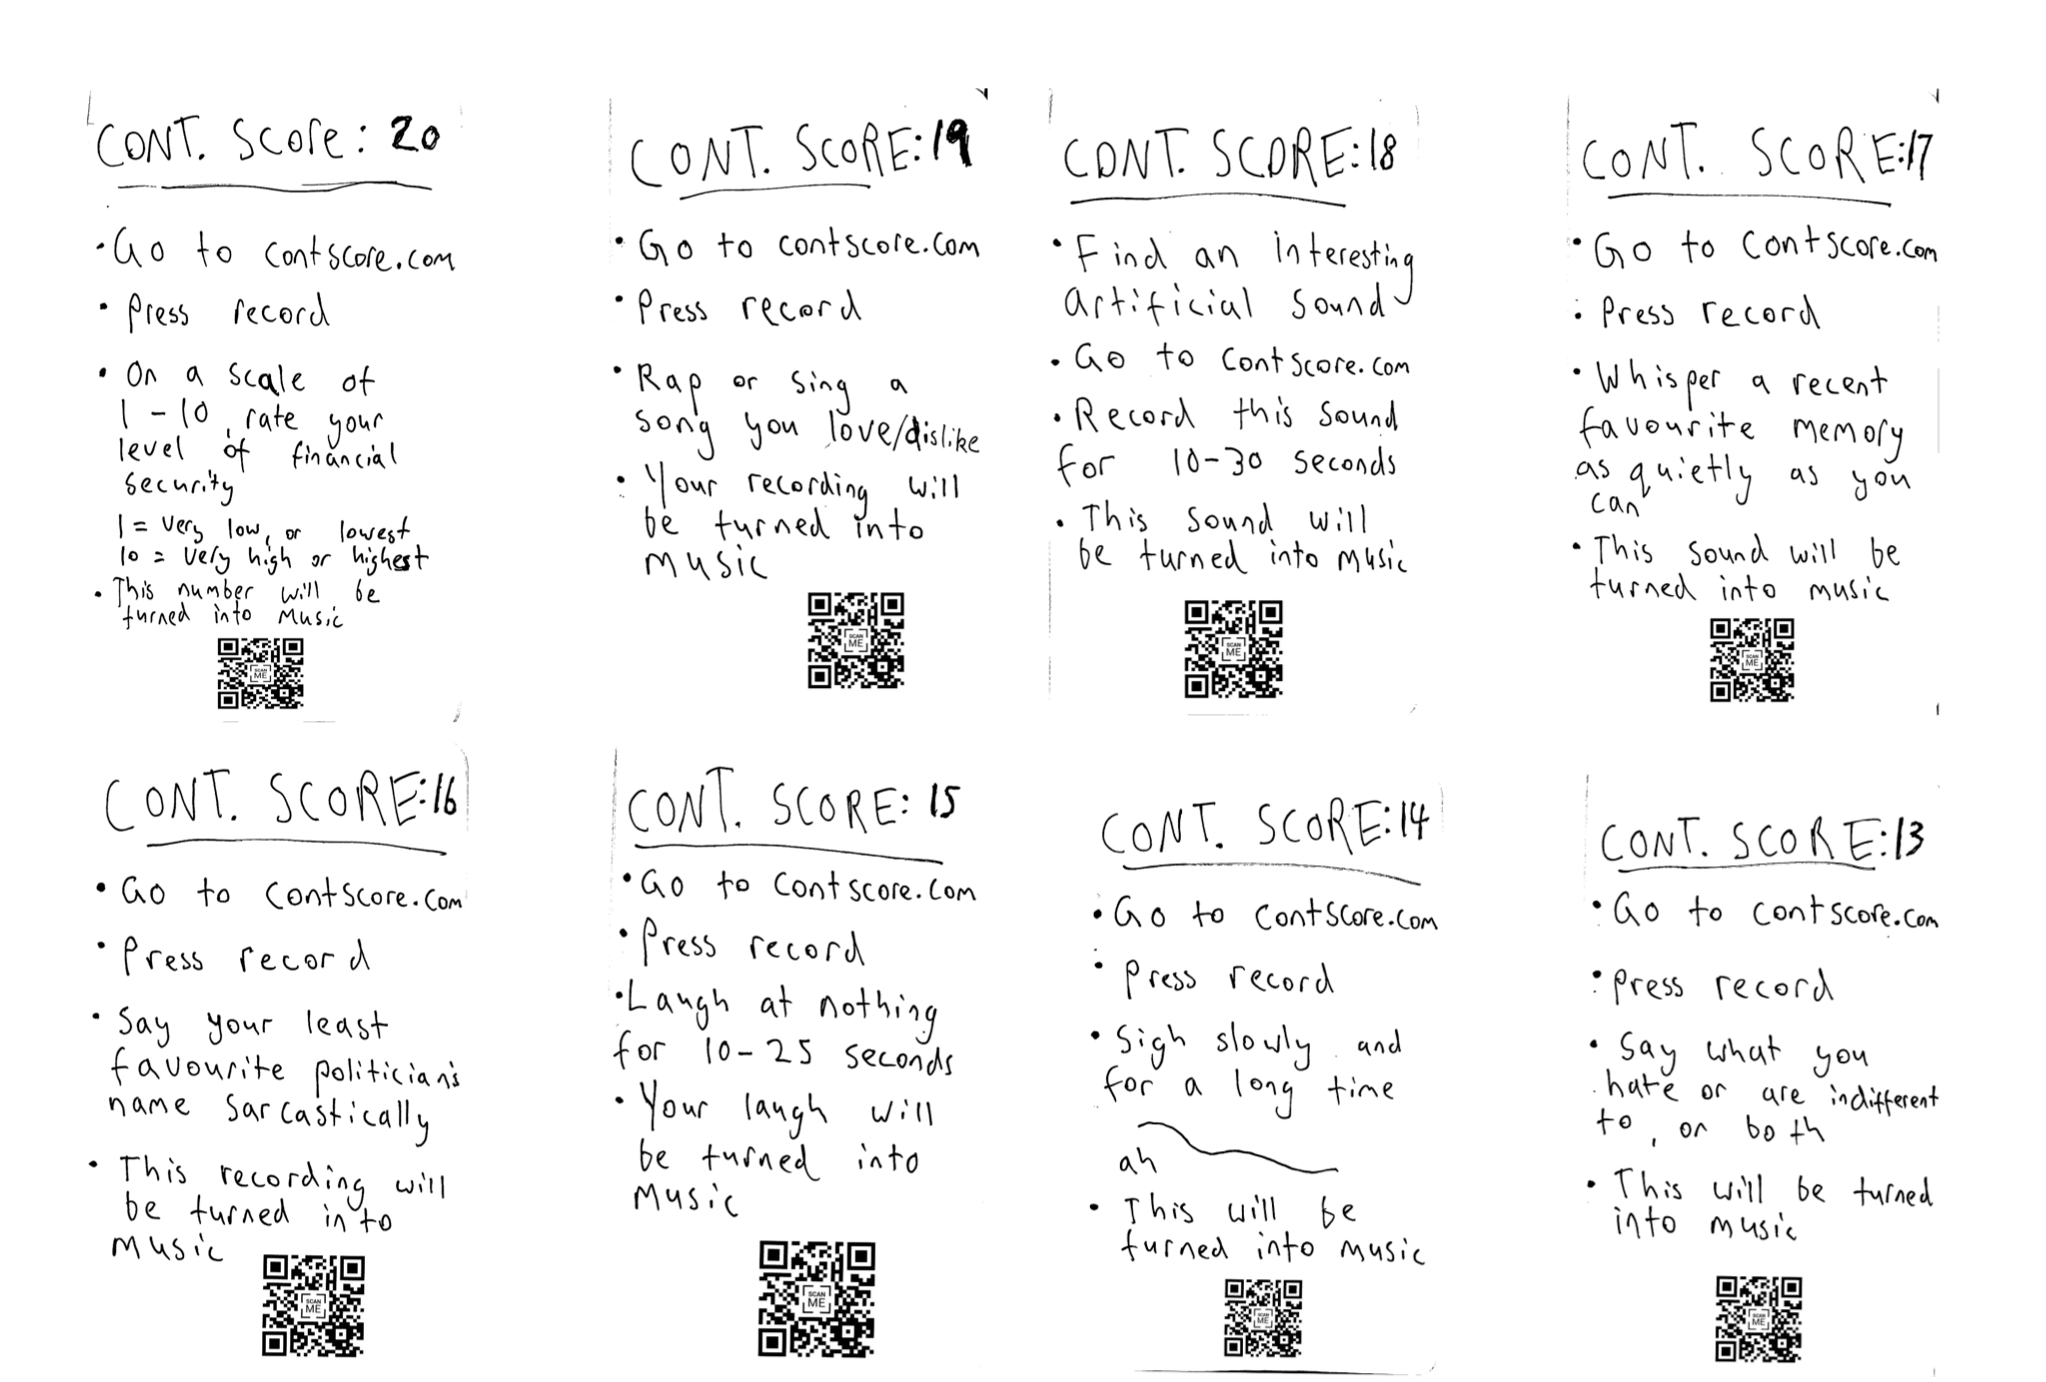 CONT. Score: 20
• Go to contscore.com
• Press record
• On a scale of
1 - 10, rate your
level of financial
security
1 = very low, or lowest
10 = very high or highest
• This number will be
turned into music
SCAN
ME
CONT. SCORE: 19
• Go to contscore.com
• Press record
• Rap or sing a
song you love/dislike
• Your recording will
be turned into
music
SCAN
ME
CONT. SCORE: 18
• Find an interesting
artificial sound
• Go to contscore.com
• Record this sound
for 10-30 seconds
• This sound will
be turned into music
SCAN
ME
CONT. SCORE: 17
• Go to contscore.com
• Press record
• Whisper a recent
favourite memory
as quietly as you
can
• This sound will be
turned into music
SCAN
ME
CONT. SCORE: 16
• Go to contscore.com
• Press record
• Say your least
favourite politician's
name sarcastically
• This recording will
be turned into
music
SCAN
ME
CONT. SCORE: 15
• Go to contscore.com
• Press record
• Laugh at nothing
for 10-25 seconds
• Your laugh will
be turned into
music
SCAN
ME
CONT. SCORE: 14
• Go to contscore.com
• Press record
• Sigh slowly and
for a long time
ah
• This will be
turned into music
SCAN
ME
CONT. SCORE: 13
• Go to contscore.com
• Press record
• Say what you
hate or are indifferent
to, or both
• This will be turned
into music
SCAN
ME